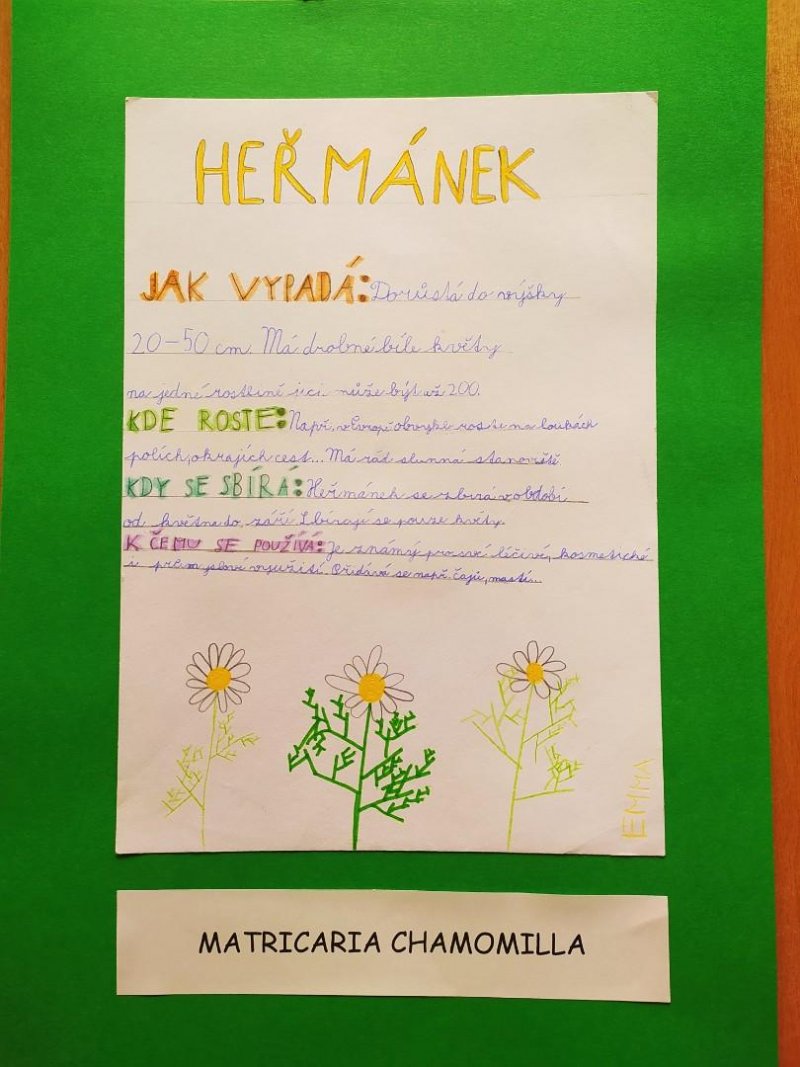 HEŘMÁNEK
JAK VYPADÁ: Dorůstá do výšky
20-50 cm. Má drobné bíle květy
na jedné rostlině jici může být až 200.
KDE ROSTE: Např. v Evropě obvykle roste na loukách
polích, okrajích cest... Má rád slunná stanoviště
KDY SE SBÍRÁ: Heřmánek se zbírá v období
od května do září Sbírají se pouze květy.
K ČEMU SE POUŽÍVÁ: Je známý pro své léčivé, kosmetické
i průmyslové využití. Přidává se např. čajů, mastí...
EMMA
MATRICARIA CHAMOMILLA